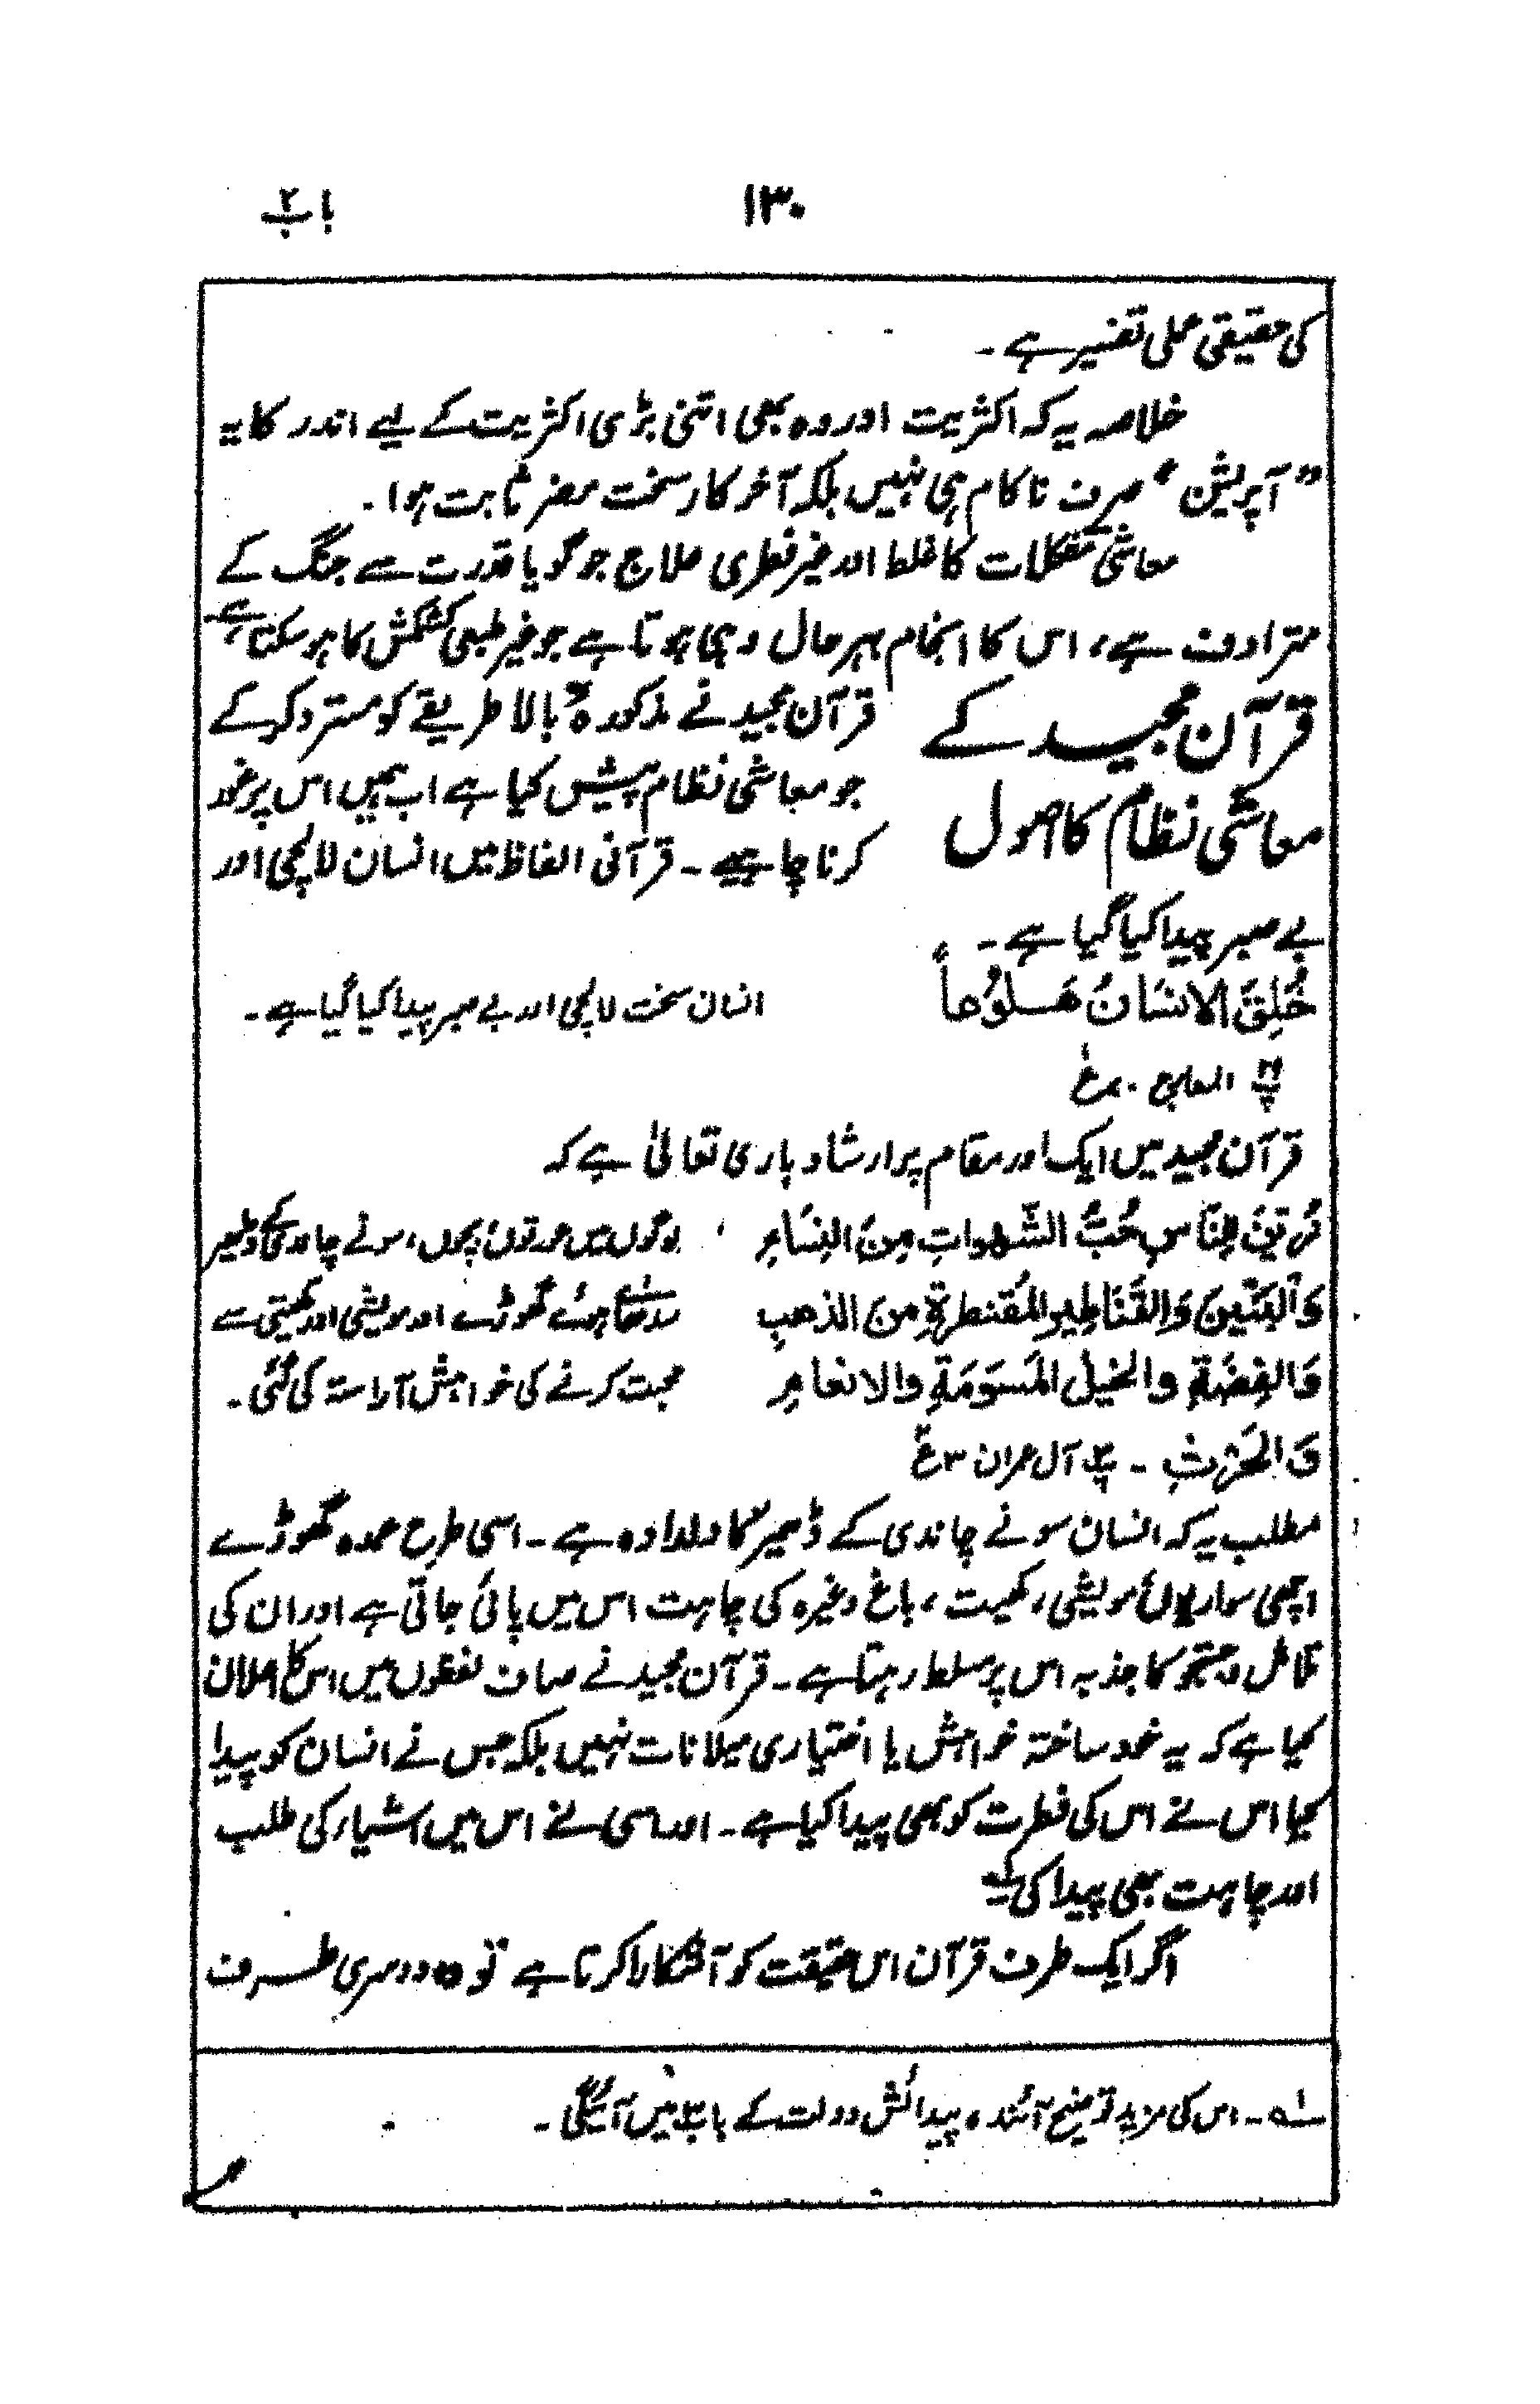 ۱۳۰
باب ۲
کی حقیقی عملی تفسیر ہے۔
خلاصہ یہ کہ اکثریت اور وہ بھی اتنی بڑی اکثریت کے لیے اندر کا یہ
”آپریشن“ صرف ناکام ہی نہیں بلکہ آخر کار سخت مضر ثابت ہوا۔
معاشی مشکلات کا غلط اور غیر فطری علاج جو گویا قدرت سے جنگ کے
مترادف ہے، اس کا انجام بہرحال وہی ہوتا ہے جو غیر طبعی کشمکش کا ہو سکتا ہے۔
قرآن مجید کے
معاشی نظام کا اصول
قرآن مجید نے مذکورہ بالا طریقے کو مسترد کر کے
جو معاشی نظام پیش کیا ہے اب ہمیں اس پر غور
کرنا چاہیے۔ قرآنی الفاظ میں انسان لالچی اور
بے صبر پیدا کیا گیا ہے۔
خُلِقَ الانسَانُ هَلوُعاً
پ ۲۹ المعارج ۷۰ ع ۱
انسان سخت لالچی اور بے صبر پیدا کیا گیا ہے۔
قرآن مجید میں ایک اور مقام پر ارشاد باری تعالیٰ ہے کہ
زُيِّنَ لِلنَّاسِ حُبُّ الشَّهواتِ مِنَ النِسَاءِ
وَالبَنِّينَ وَالقَنَاطِيرِ المُقنطرةِ مِنَ الذهبِ
وَالفِضَةِ والخيلِ المُسَوَمَةِ والانعامِ
وَالحَرْثِ ۔ پ ۳ آل عمران ۳ ع ۲
لوگوں میں عورتوں، بچوں، سونے چاندی کے ڈھیر
سدھائے ہوئے گھوڑے اور مویشی اور کھیتی سے
محبت کرنے کی خواہش آراستہ کی گئی۔
مطلب یہ کہ انسان سونے چاندی کے ڈھیر کا دلدادہ ہے۔ اسی طرح عمدہ گھوڑے
اچھی سواریاں، مویشی، کھیت، باغ وغیرہ کی چاہت اس میں پائی جاتی ہے اور ان کی
تلاش و جستجو کا جذبہ اس پر مسلط رہتا ہے۔ قرآن مجید نے صاف لفظوں میں اس کا اعلان
کیا ہے کہ یہ خود ساختہ خواہش یا اختیاری میلانات نہیں بلکہ جس نے انسان کو پیدا
کیا اس نے اس کی فطرت کو بھی پیدا کیا ہے۔ اور اسی نے اس میں اشیار کی طلب
اور چاہت بھی پیدا کی لہ
اگر ایک طرف قرآن اس حقیقت کو آشکارا کرتا ہے تو وہ دوسری طرف
لہ۔ اس کی مزید توضیح آئندہ پیدائش دولت کے باب ۳ میں آئیگی۔